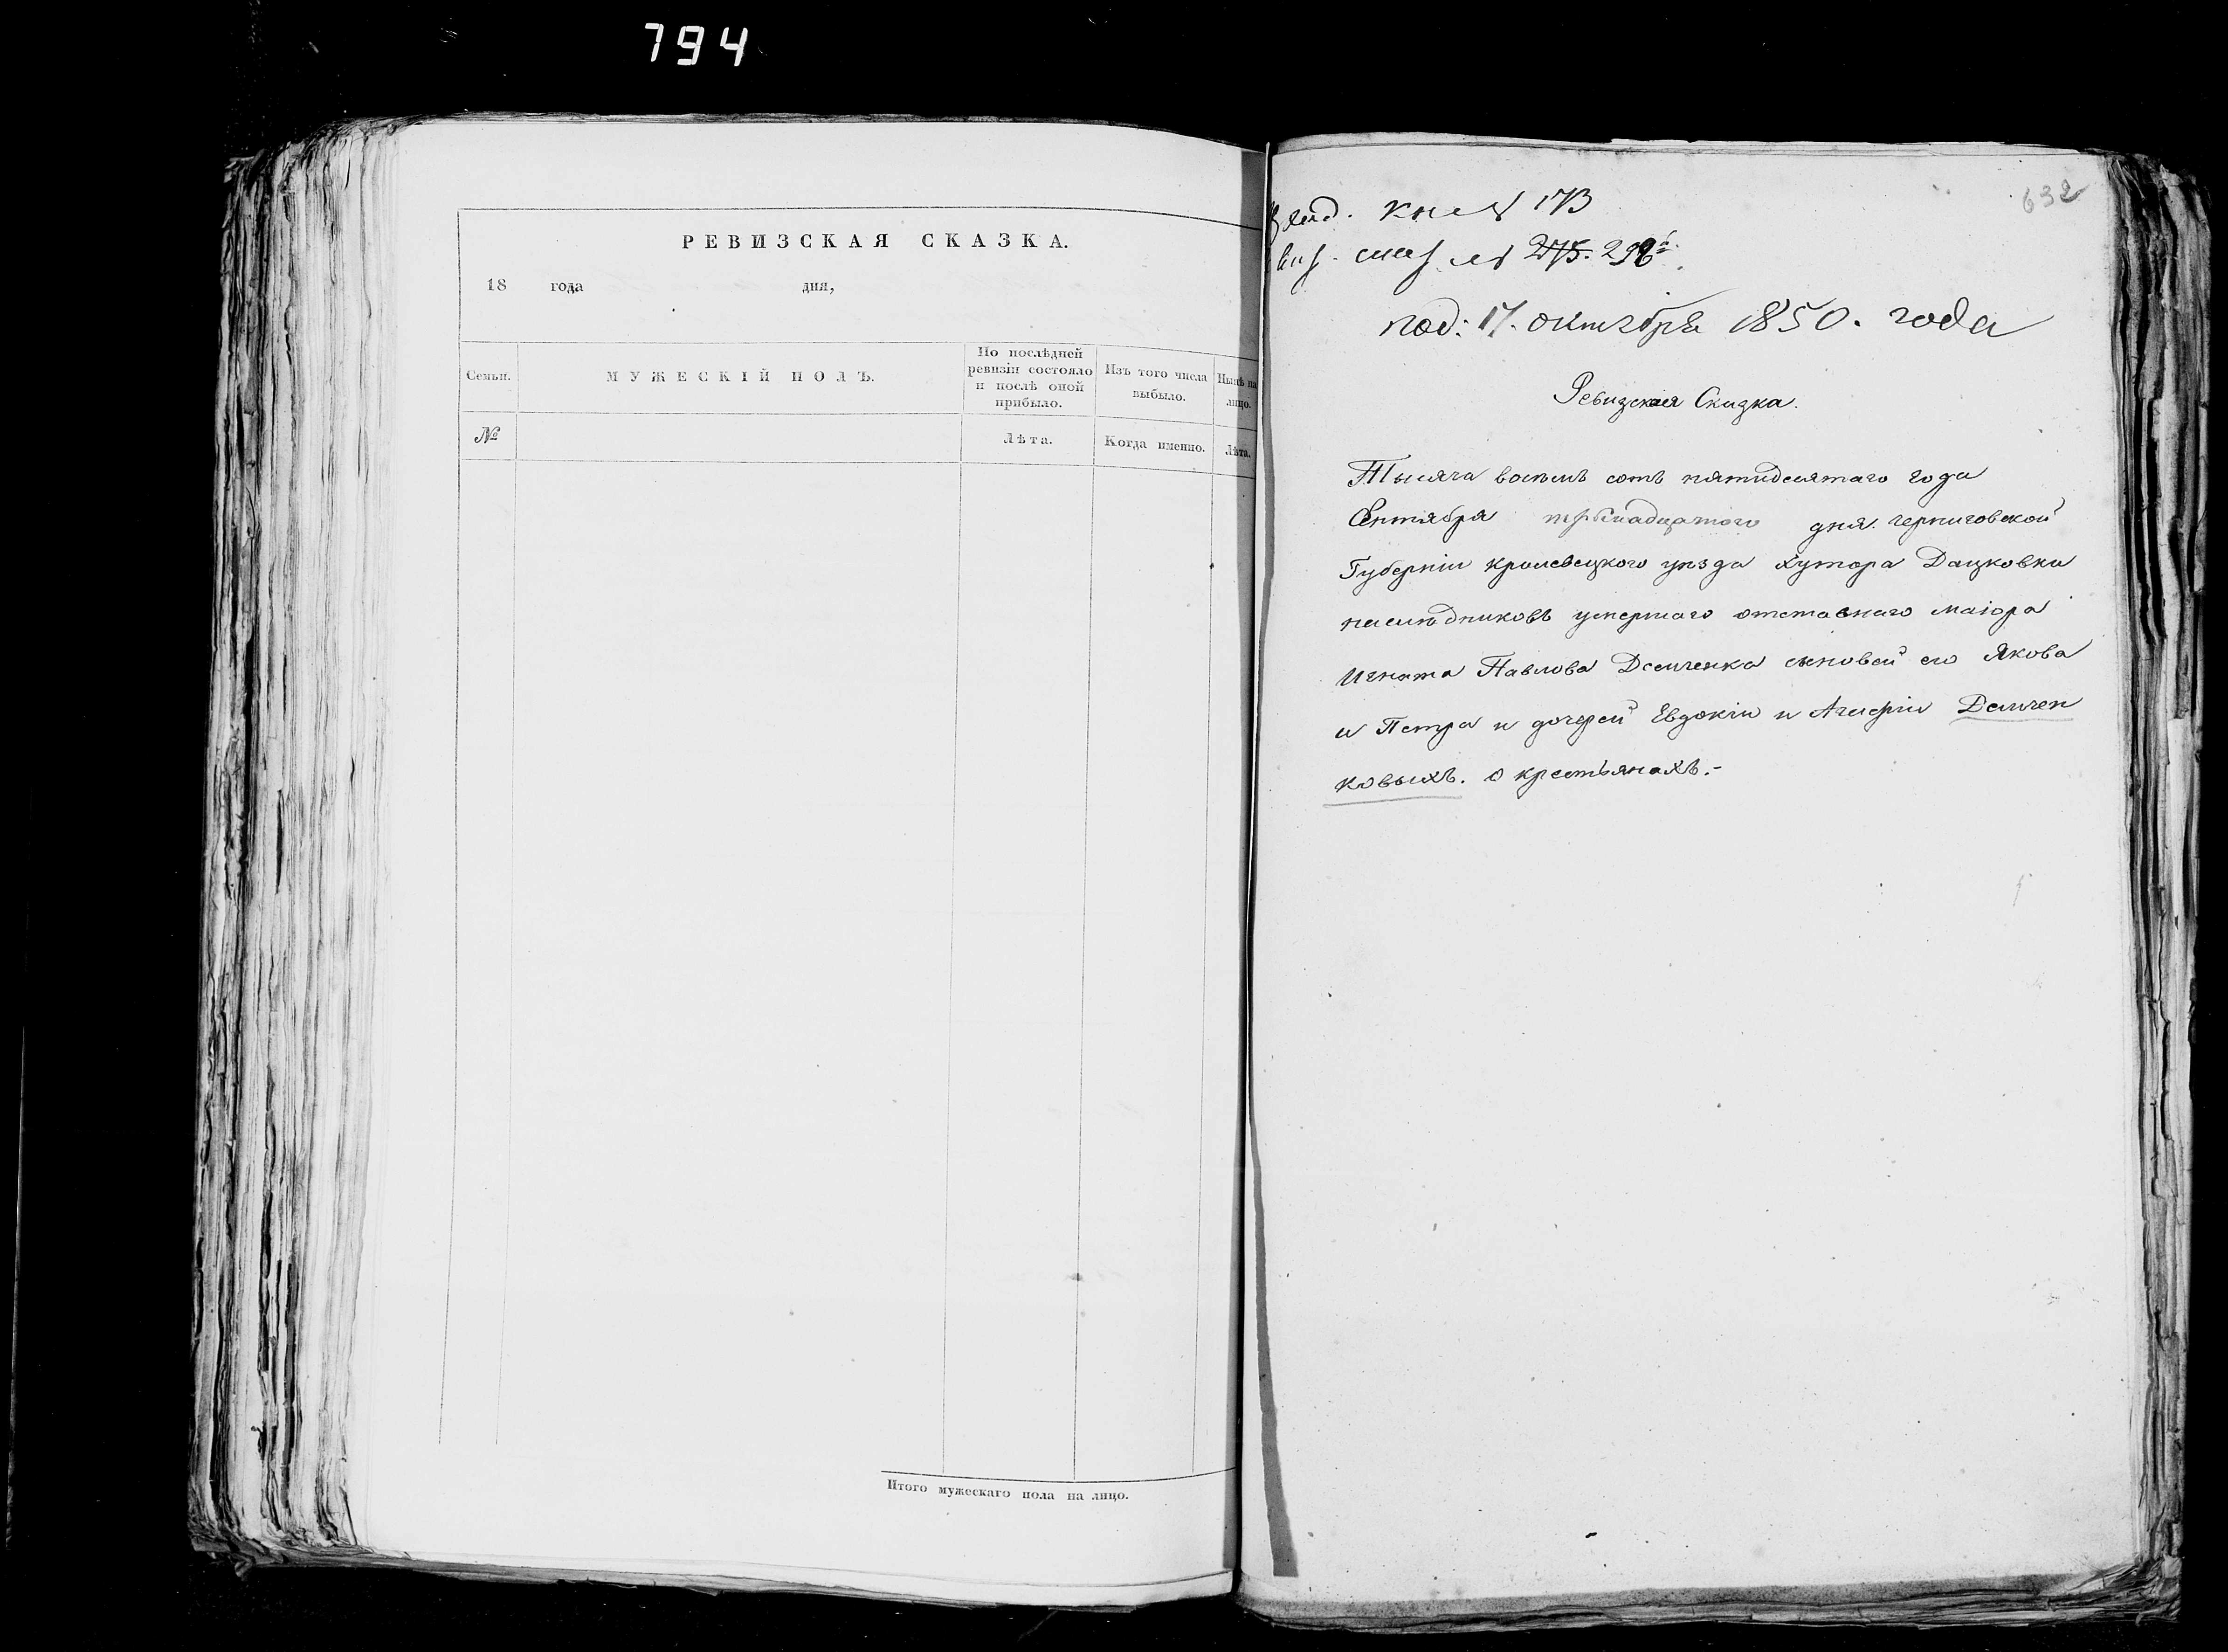 794
РЕВИЗСКАЯ СКАЗКА.
18 года дня,
Семьи.
МУЖЕСКІЙ ПОЛЪ.
По послѣдней
ревизіи состояло
и послѣ оной
прибыло.
Изъ того числа
выбыло.
Нынѣ на
лицо.
№
Лѣта.
Когда именно.
Лѣта.
Итого мужескаго пола на лицо.
632
кн № 173
№ 275.
под: 17. октября 1850. года
Ревизская Сказка.
Тысяча восемь сотъ пятидесятаго года
Сентября тринадцатого дня. Черниговской
Губерніи Кролевецкого уѣзда хутора Дацковки
наслѣдниковъ умершаго отставнаго маіора
Игната Павлова Демченка сыновей его Якова
и Петра и дочерей Евдокіи и Демчен
ковыхъ. о крестьянахъ.-